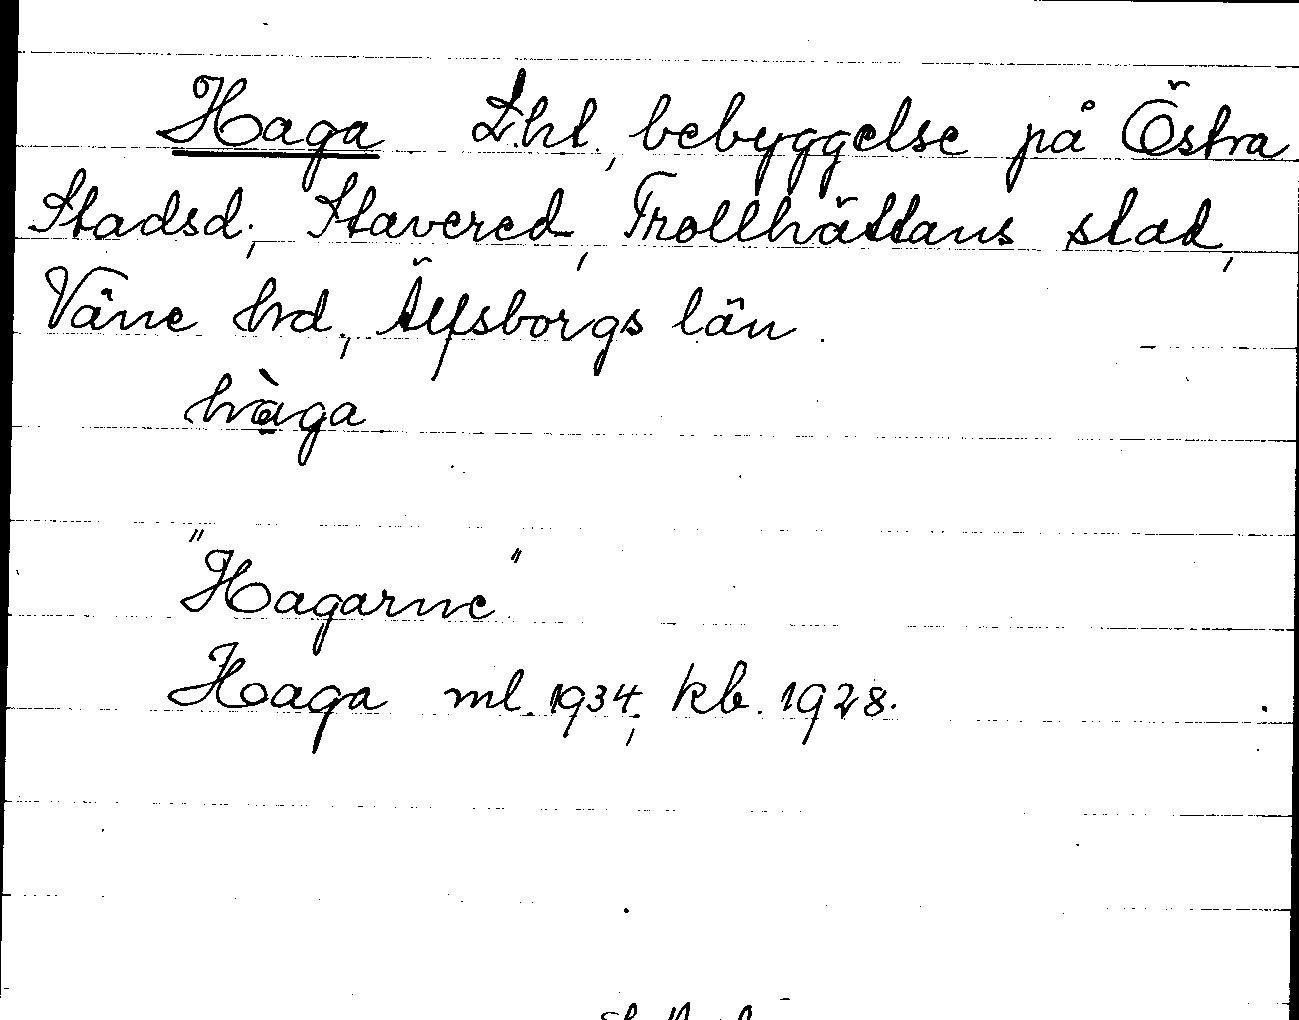 Haga Lht., bebyggelse på Östra
Stadsd., Stavered, Trollhättans stad,
Väne hd, Älfsborgs län.
hàga
"Hagarne"
Haga ml. 1934, kb. 1928.